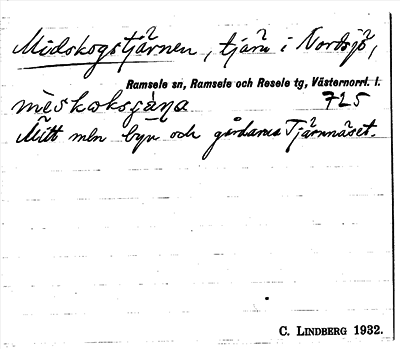 Midskogstjärnen, tjärn i Nordsjö,
Ramsele sn, Ramsele och Resele tg, Västernorrl. l.
mèskoksjàṇa 725
Mitt mln byn och gårdarna Tjärnnäset.
C. LINDBERG 1932.